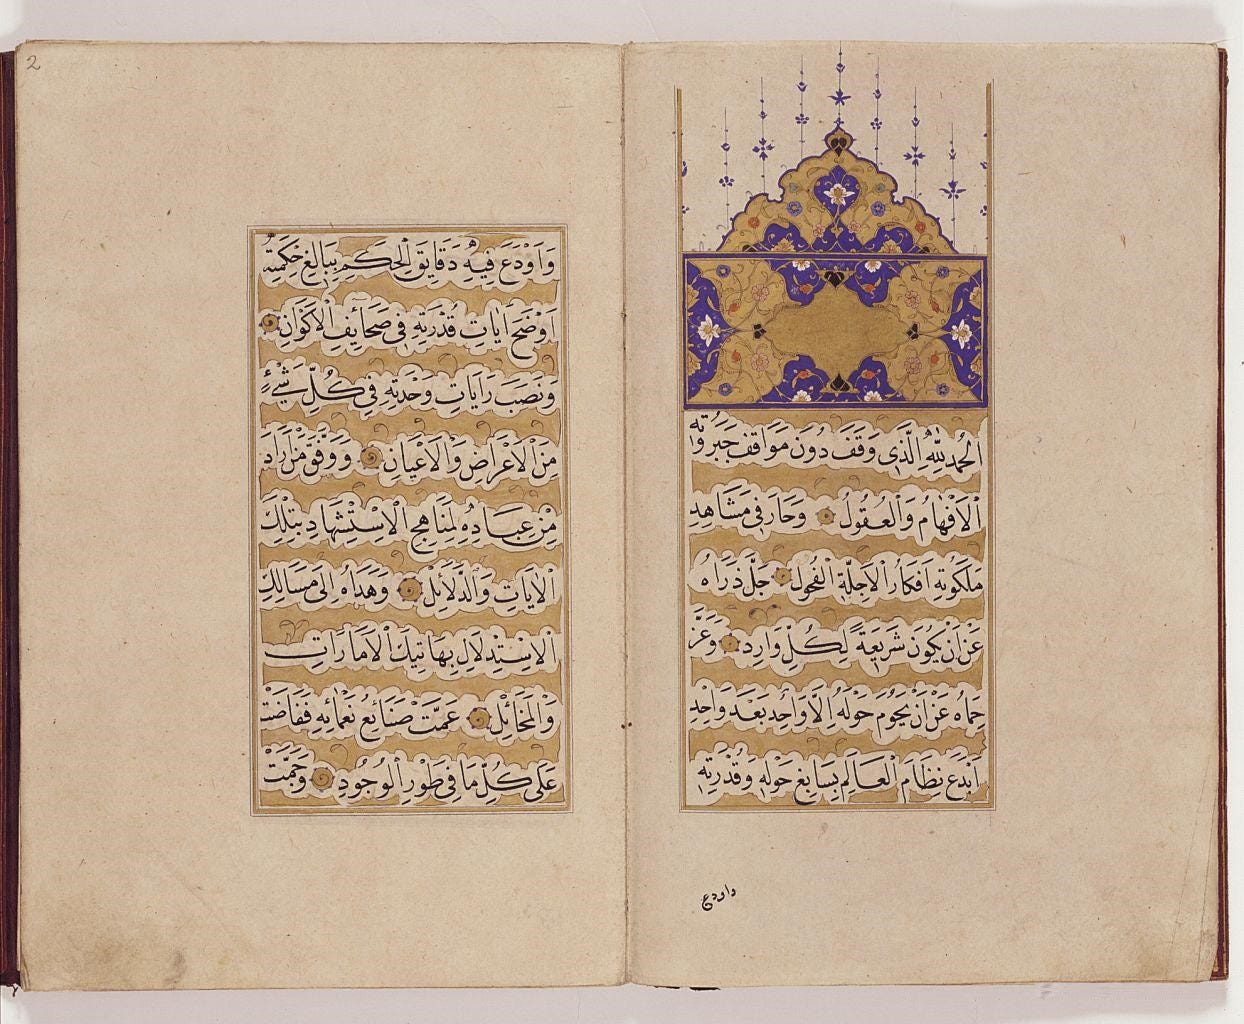 الحمد لله الذي وقف دون مواقف جبروته
الافهام والعقول وحار في مشاهد
ملكوته افكار الاجلة الفحول جل ذراه
عن ان يكون شريعة لكل وارد وعز
حماه عن ان يحوم حوله الا واحد بعد واحد
ابدع نظام العالم بسابغ حوله وقدرته
واودع
2
واودع فيه دقايق الحكم ببالغ حكمته
اوضح ايات قدرته في صحائف الاكوان
ونصب رايات وحدته في كل شيء
من الاعراض والاعيان ووفق من اراد
من عباده لمناهج الاستشهاد بتلك
الايات والدلائل وهداه الى مسالك
الاستدلال بهاتيك الامارات
والمخائل عمت صنائع نعمائه ففاضت
على كل ما في طور الوجود وجمت